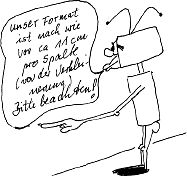 unser Format
ist nach wie
vor ca 11 cm
pro Spalte
(vor der Verklei-
nerung)
Bitte beachten!